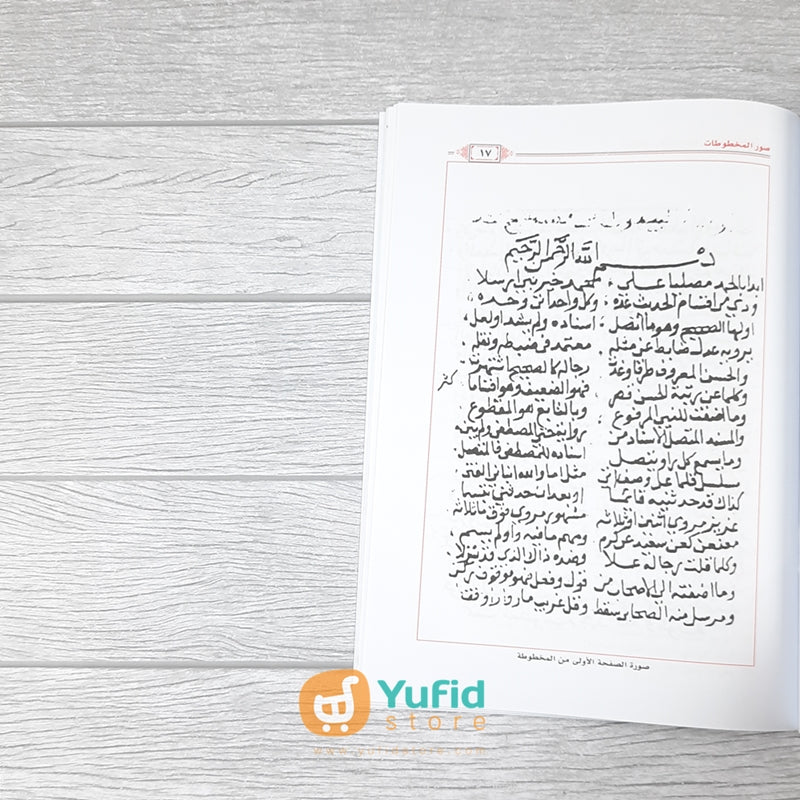 صور المخطوطات
١٧
بسم الله الرحمن الرحيم
ابدا بالحمد مصليا على ، محمد خير نبي ارسلا
وذي من اقسام الحديث عده ، وكل واحد اتى وحده
اولها الصحيح وهو ما اتصل ، اسناده ولم يشذ او لعل
يرويه عدل ضابط عن مثله معتمد في ضبطه ونقله
والحسن المعروف طرقا وغدت رجاله كالصحيح اشتهرت
وكلما عن رتبة الحسن قصر فهو الضعيف وهو اقساما كثر
وما اضفت للنبي المرفوع وما لتابع هو المقطوع
والمسند المتصل الاسناد من روايه حتى المصطفى ولم يبن
وما بسمع كل راو يتصل اسناده للمصطفى فالمتصل
مسلسل قل ما على وصف اتى مثل اما والله انباني الفتى
كذاك قد حدثنيه قائما او بعد ان حدثني تبسما
عزيز مروي اثنين او ثلاثه مشهور مروي فوق ما ثلاثه
معنعن كعن سعيد عن كرم ومبهم ما فيه راو لم يسم
وكلما قلت رجاله علا وضده ذاك الذي قد نزلا
وما اضفته الى الاصحاب من قول وفعل فهو موقوف زكن
ومرسل منه الصحابي سقط وقل غريب ما روا راو فقط
صورة الصفحة الأولى من المخطوطة
Yufid
store
www.yufidstore.com